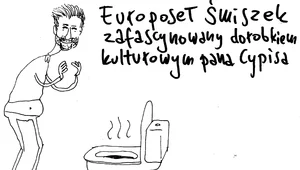 Europoseł Śmiszek
zafascynowany dorobkiem
kulturowym pana Cypisa